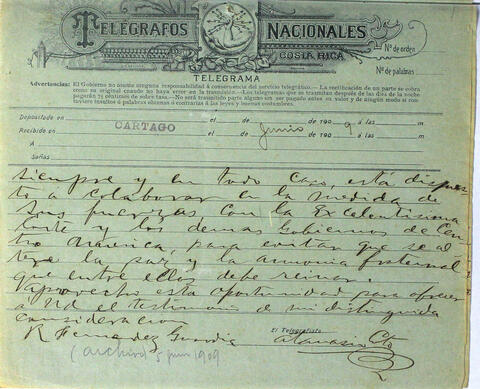 TELÉGRAFOS NACIONALES
COSTA RICA
Nº de orden
Nº de palabras
TELEGRAMA
Advertencias: El Gobierno no asume ninguna responsabilidad á consecuencia del servicio telegráfico.—La rectificación de un parte se cobra
como su original cuando no haya error en la transmisión.—Los telegramas que se transmitan después de las diez de la noche
pagarán 75 céntimos de sobre tasa.—No será transmitido parte alguno sin ser pagado antes su valor y de ningún modo si con-
tuviere insultos ó palabras obscenas ó contrarias á las leyes y buenas costumbres.
Depositado en de 190 á las m
Recibido en CARTAGO el Junio de 190 9 á las m
A
Señas
siempre y en todo caso, está dispues-
to a colaborar en la medida de
sus fuerzas con la Excelentísima
Corte y los demas Gobiernos de Cen-
tro America, para evitar que se al
tere la paz y la armonia fraternal
que entre ellos debe reinar.
Aprovecho esta oportunidad para ofrecer
a Ud el testimonio de mi distinguida
consideracion
R Fernandez Guardia
El Telegrafista
(archivo) 5 jun 1909